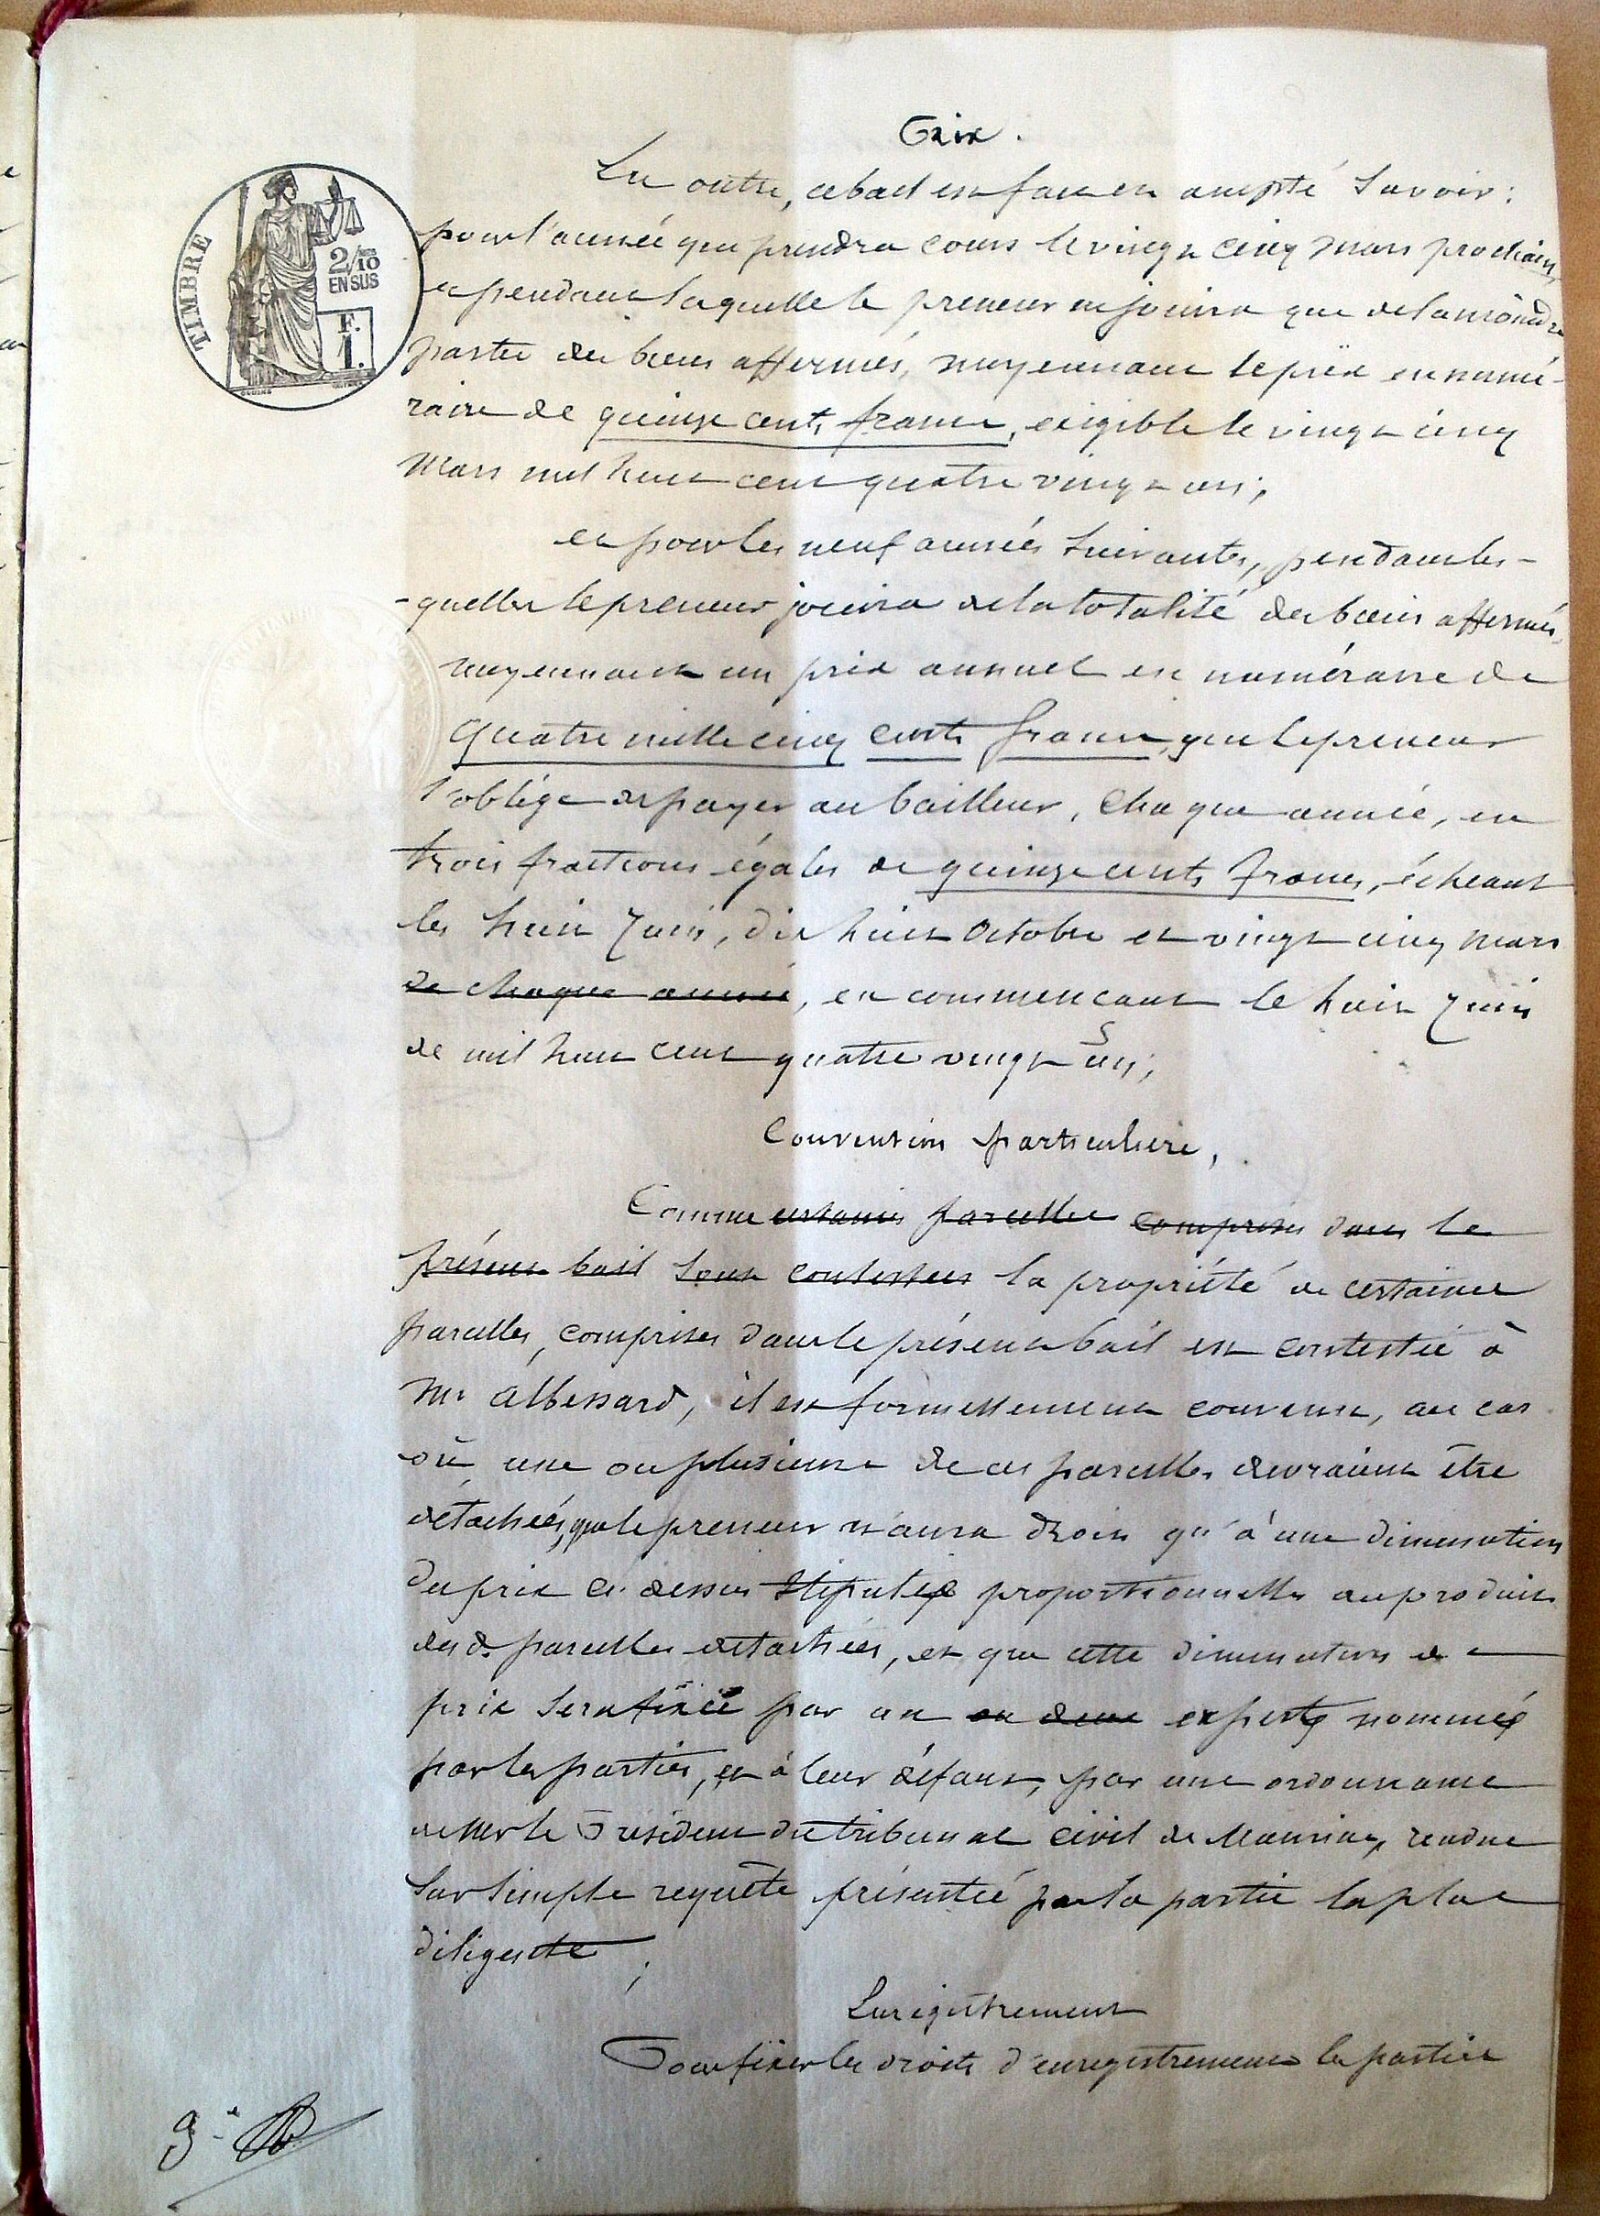 Prix.
En outre, ce bail est fait et accepté savoir:
pour l'année qui prendra cours le vingt cinq mars prochain,
et pendant laquelle le preneur ne jouira que de la moindre
partie des biens affermés, moyennant le prix en numé-
raire de quinze cents francs, exigible le vingt cinq
mars mil huit cent quatre vingt un;
TIMBRE
2/10
EN SUS
F.
1.
et pour les neuf années suivantes, pendant les-
-quelles le preneur jouira de la totalité des biens affermés,
moyennant un prix annuel en numéraire de
quatre mille cinq cents francs, que le preneur
s'oblige de payer au bailleur, chaque année, en
trois fractions égales de quinze cents francs, échéant
les huit juin, dix huit octobre et vingt cinq mars
de chaque année, en commençant le huit juin
de mil huit cent quatre vingt un;
Convention particulière,
Comme certaines parcelles comprises dans le
présent bail sont contestées la propriété de certaines
parcelles, comprises dans le présent bail est contestée à
Mr Albessard, il est formellement convenu, au cas
où une ou plusieurs de ces parcelles devraient être
détachées, que le preneur n'aura droit qu'à une diminution
du prix ci-dessus stipulé proportionnelle au produit
des d. parcelles détachées, et que cette diminution de
prix sera fixée par un ou deux experts nommés
par les parties, et à leur défaut, par une ordonnance
de Mr le Président du tribunal civil de Mauriac, rendue
sur simple requête présentée par la partie la plus
diligente;
Enregistrement
Pour fixer les droits d'enregistrement les parties